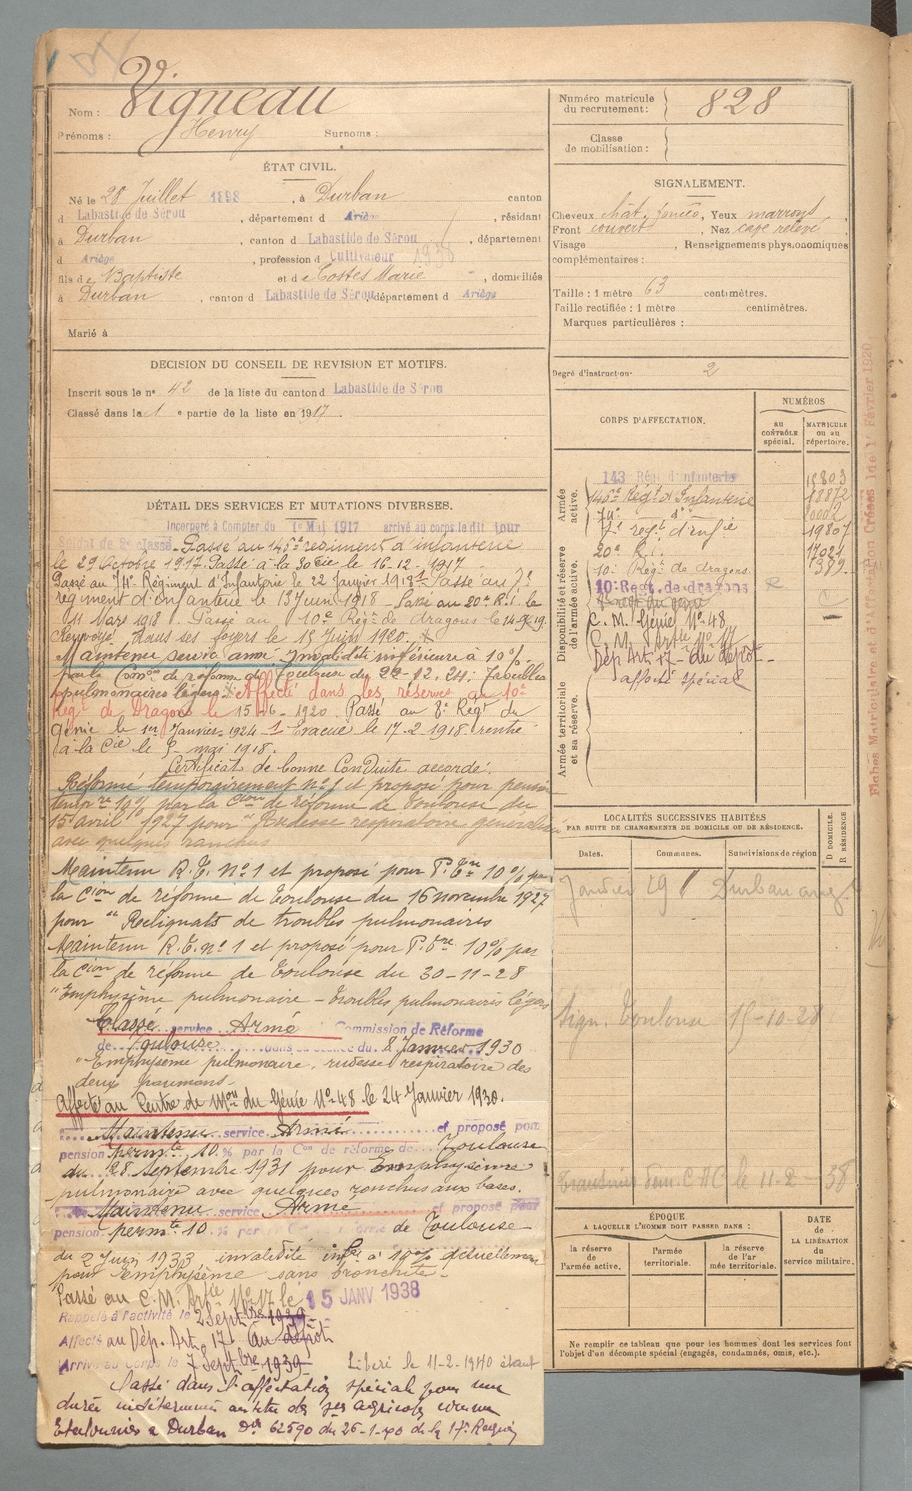 Nom : Vigneau
Prénoms : Henry Surnoms :
ÉTAT CIVIL.
Né le 28 Juillet 1898, à Durban canton
d Labastide de Sérou, département d Ariège, résidant
à Durban, canton d Labastide de Sérou, département
d Ariège, profession d Cultivateur 1938
fils de Baptiste et de Costes Marie, domiciliés
à Durban, canton d Labastide de Sérou département d Ariège
Marié à
DECISION DU CONSEIL DE REVISION ET MOTIFS.
Inscrit sous le n° 42 de la liste du canton d Labastide de Sérou
Classé dans la 1 e partie de la liste en 1917.
DÉTAIL DES SERVICES ET MUTATIONS DIVERSES.
Incorporé à Compter du 1er Mai 1917 arrivé au corps le dit jour
Soldat de 2e classe. Passé au 146e régiment d'infanterie
le 29 Octobre 1917. Passé à la 30e Cie le 16-12-1917
Passé au 74e Régiment d'Infanterie le 22 Janvier 1918. Passé au
régiment d'infanterie le 13 Juin 1918 - Passé au 20e R.I. le
11 Mars 1918. Passé au 10e Régt de dragons le
Renvoyé dans ses foyers le 15 Juin 1920.
Maintenu service armé Invalidité inférieure à 10%
par la Comon de réforme de Toulouse du 22-12-24:
pulmonaires légers. Affecté dans les réserves au 10e
Régt de Dragons le 15-6-1920. Passé au 2e Régt du
Génie le 1er Janvier 1924 - Evacué le 17-2-1918 rentré
à la Cie le 5 mai 1918.
Certificat de bonne Conduite accordé.
Réformé temporairement n° 1 et proposé pour pension
temp re 10% par la Cion de réforme de Toulouse du
15 avril 1927 pour "Rudesse respiratoire généralisée
avec quelques ronchus
Maintenu R.T. N° 1 et proposé pour P. Tre 10% par
la Cion de réforme de Toulouse du 16 novembre 1927
pour "Reliquats de troubles pulmonaires
Maintenu R.T. n° 1 et proposé pour P. Tre 10% par
la Cion de réforme de Toulouse du 30-11-28
"Emphysème pulmonaire - troubles pulmonaires légers
Classé service Armé Commission de Réforme
de Toulouse dans sa séance du 8 Janvier 1930
"Emphysème pulmonaire, rudesse respiratoire des
deux poumons.
Affecté au Centre de Mon du Génie N° 48 le 24 Janvier 1930.
Maintenu service Armé et proposé pour
pension permte 10 % par la Con de réforme de Toulouse
du 28 Septembre 1931 pour Emphysème
pulmonaire avec quelques ronchus aux bases.
Maintenu service Armé et proposé pour
pension permte 10 % par la Con de réforme de Toulouse
du 2 Juin 1933 invalidité infre à 10% actuellement
pour Emphysème sans bronchite.
Passé au C.M. Artie N° 17 le 15 JANV 1938
Rappelé à l'activité le 2 Septbre 1939
Affecté au Dép. Art. 17 au dépôt
Arrivé au Corps le 7 Septbre 1939 Libéré le 11-2-1940 étant
Passé dans l'affectation spéciale pour une
durée indéterminée au titre des agricoles comme
à Durban Don 62590 du 26-1-40 de la 17e Région
Numéro matricule du recrutement : 828
Classe de mobilisation :
SIGNALEMENT.
Cheveux chât. foncés, Yeux marrons,
Front couvert, Nez cave relevé
Visage Renseignements physionomiques
complémentaires :
Taille : 1 mètre 63 centimètres.
Taille rectifiée : 1 mètre centimètres.
Marques particulières :
Degré d'instruction 2
CORPS D'AFFECTATION.
NUMÉROS
AU CONTRÔLE spécial.
MATRICULE ou au répertoire.
Armée active.
Disponibilité et réserve de l'armée active.
Armée territoriale et sa réserve.
143 Régt d'infanterie
146e Régt d'Infanterie 18872
74e d° 10002
régt d'infie 19807
20e R.I. 17024
10e Régt de dragons 1389
10e Régt. de dragons R
C.M. Génie N° 48
C.M. Artie N° 17
Dép Art. 17 - du dépôt -
affecté spécial
Fiches Matriculaire et d'Affectation Créées le 1er Février 1920
LOCALITÉS SUCCESSIVES HABITÉES
PAR SUITE DE CHANGEMENTS DE DOMICILE OU DE RÉSIDENCE.
Dates.
Communes.
Subdivisions de région
D DOMICILE.
R RÉSIDENCE
Durban
Toulouse 15-10-28
C M le 11-2-38
ÉPOQUE
A LAQUELLE L'HOMME DOIT PASSER DANS :
la réserve de l'armée active.
l'armée territoriale.
la réserve de l'armée territoriale.
DATE de LA LIBÉRATION du service militaire.
Ne remplir ce tableau que pour les hommes dont les services font
l'objet d'un décompte spécial (engagés, condamnés, omis, etc.).